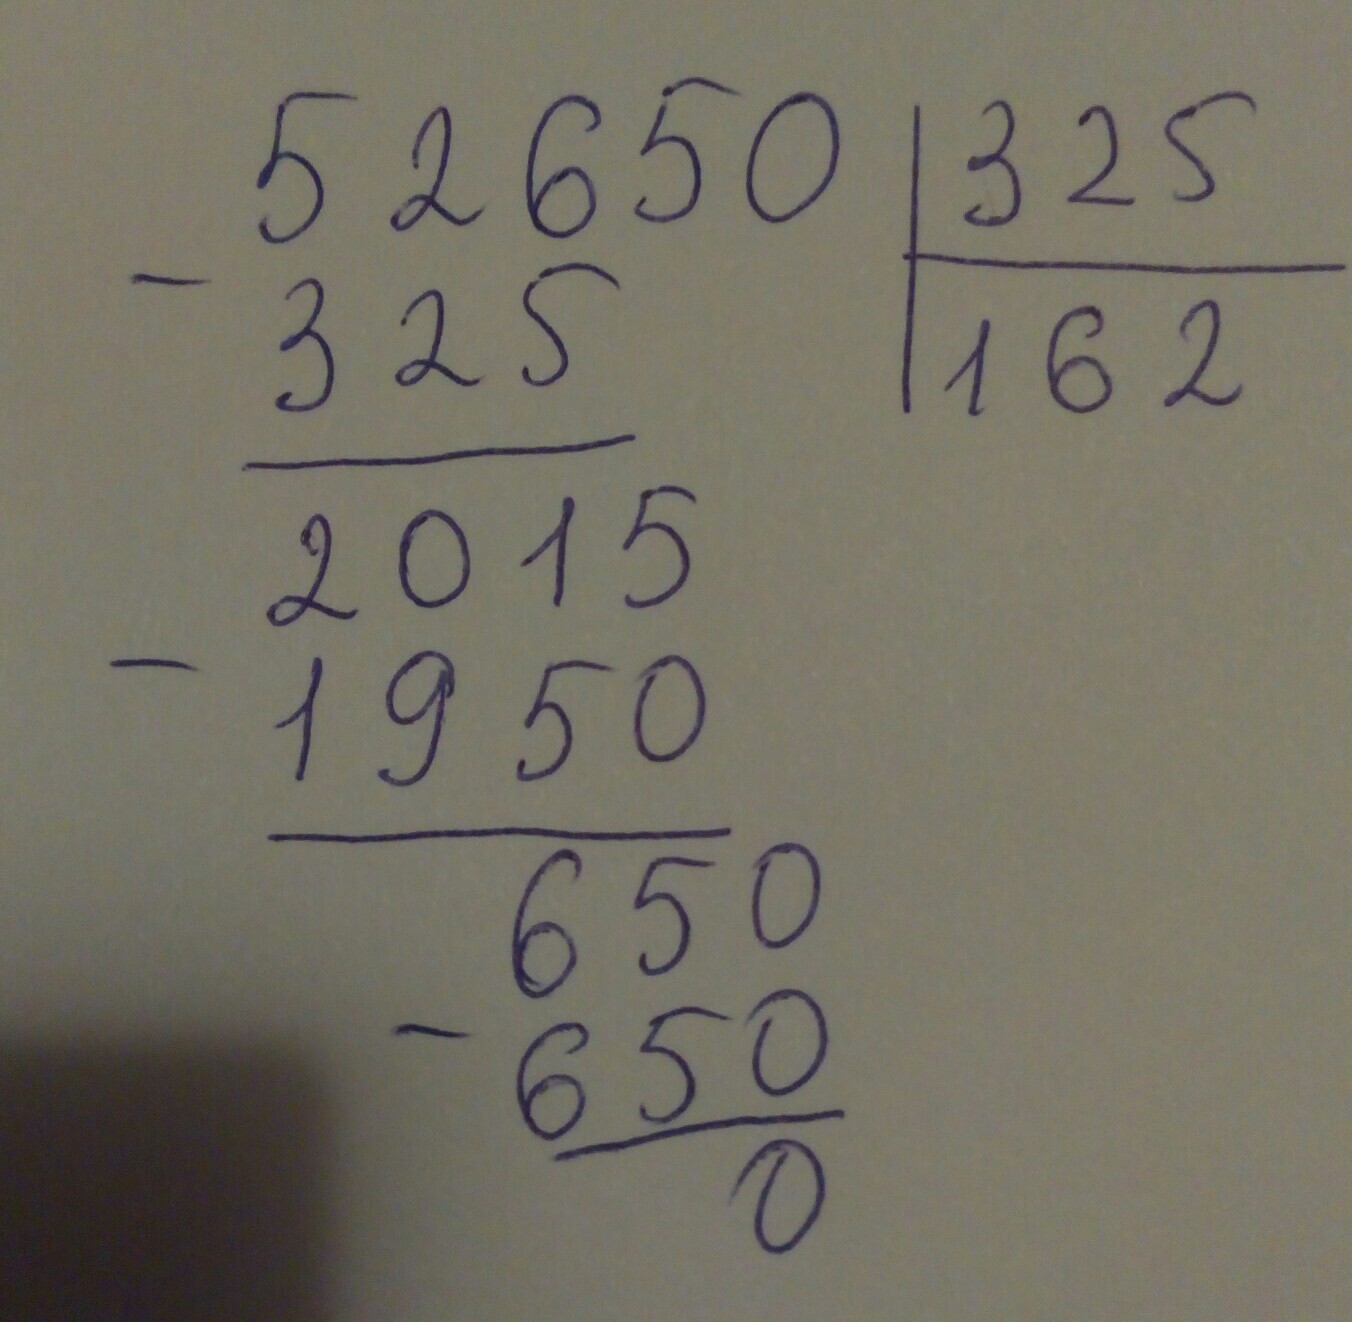 52650 325
- 325 162
2015
- 1950
650
- 650
0